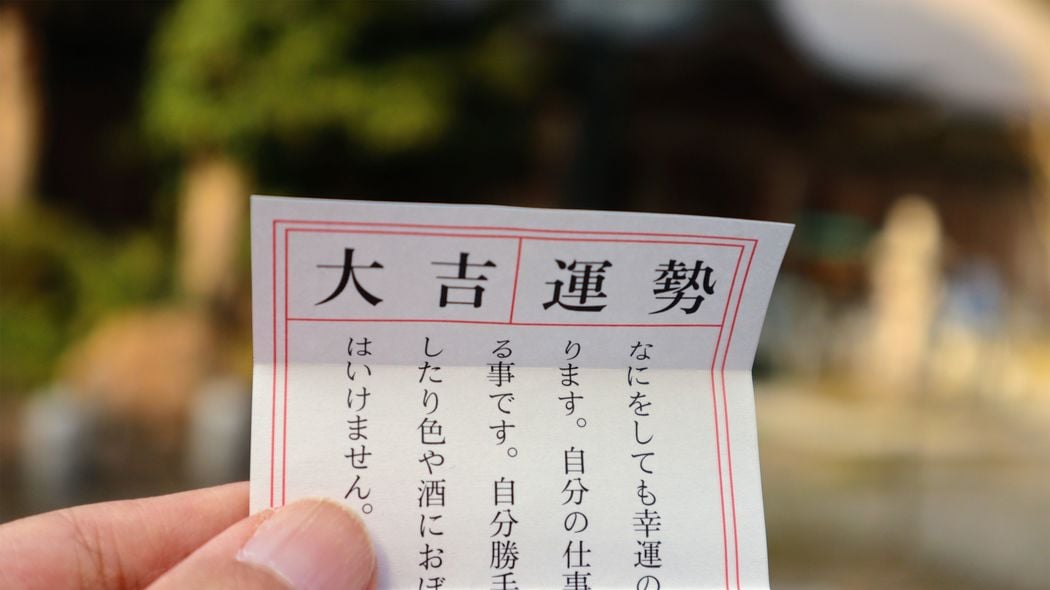 運勢
大吉
なにをしても幸運の
ります。自分の仕事
る事です。自分勝手
したり色や酒におぼ
はいけません。